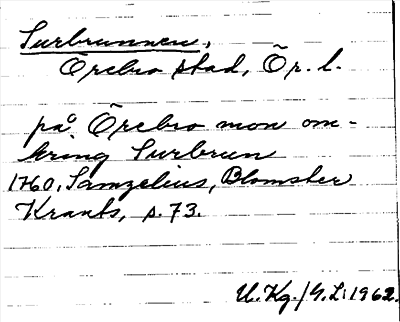 Surbrunnen,
Örebro stad, Ör. l.
på Örebro mon om-
kring Surbrun
1760, Samzelius, Blomster
Krants, s. 73.
U. Kg./G. L: 1962.